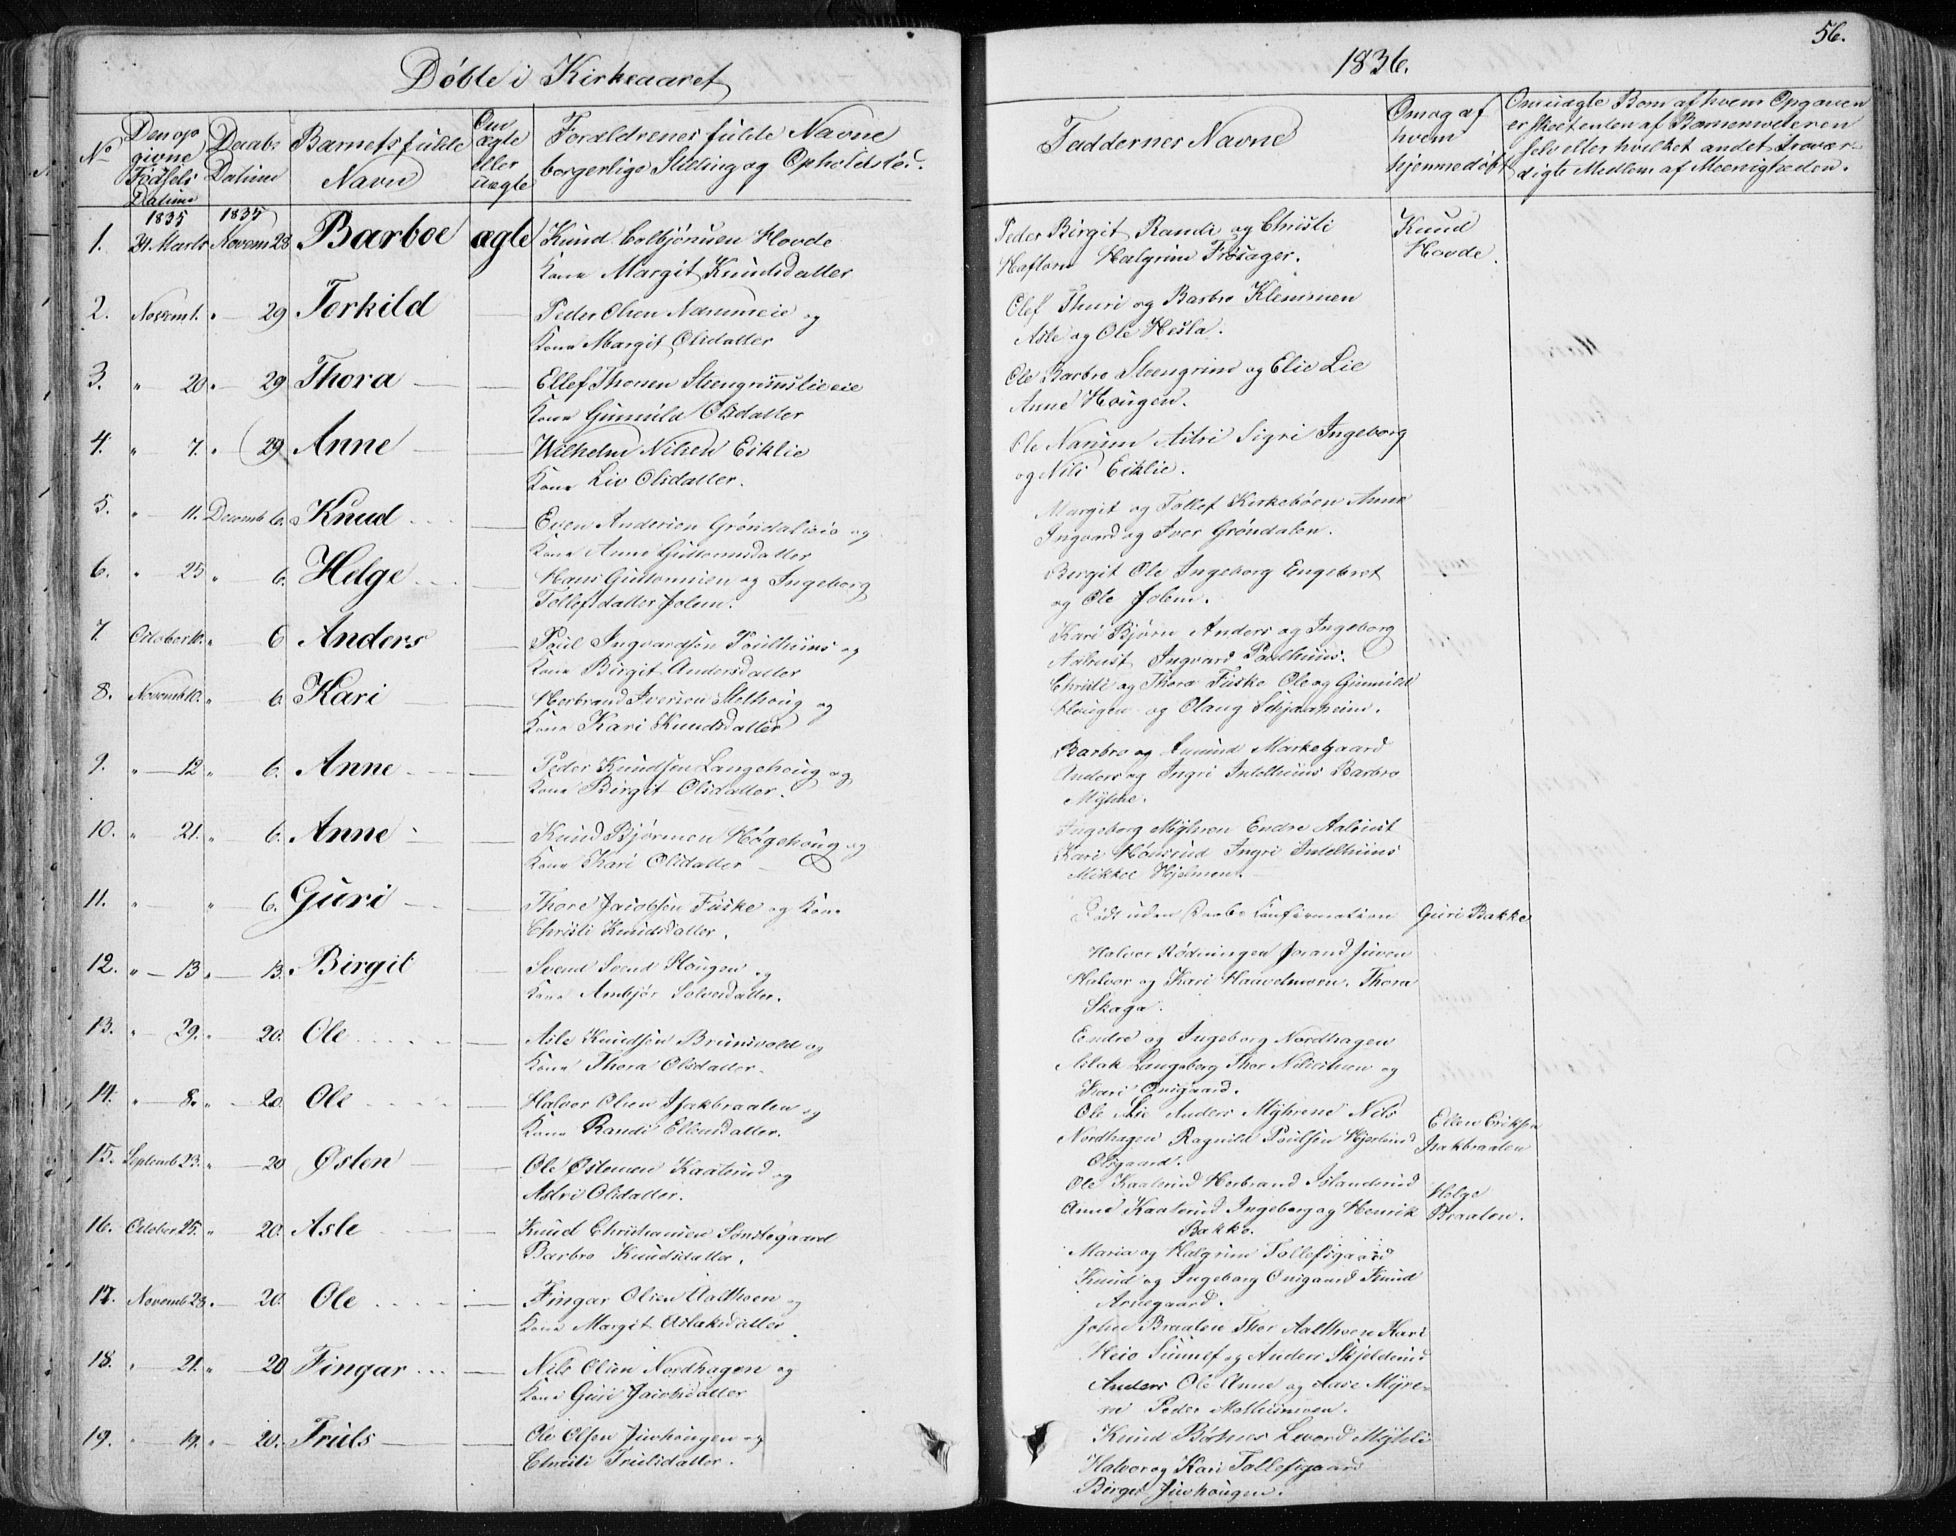 56.
Døbte i Kirkeaaret 1836.
No
Den opgivne Fødsels Datum
Daabs Datum
Barnets fulde Navn
Om ægte eller uægte
Forældrenes fulde Navne borgerlige Stilling og Opholdsted.
Faddernes Navne
Om og af hvem hjemmedøbt
Om uægte Børn af hvem Opgaven er skeet enten af Barnemoderen selv eller hvilket andet troværdigte Medlem af Meenigheden.
1835 1835
1. 31. Marts Novem 28 Barboe ægte Knud Hovde
Kone Margit Knudsdatter
Peder Birgit Randi og Christi Knud
Haftorn Halgrim Frøsager. Hovde.
2. Novem 1. " 29 Torkild Peder Olsen og
Kone Margit Olsdatter
Olef Thuri og Barbro Klemmen
Asle og Ole Hesla.
3. " 20 " 29 Thora Ellef Thoresen
Kone Gunnild Olsdatter
Ole Barbro Steengrim og Elie Lie
Anne Hougen.
4. " 7. " 29 Anne Wilhelm Nilsen Eiklie
Kone Liv Olsdatter.
Ole Narum Astri Sigri Ingeborg
og Nils Eiklie.
5. " 11. Decemb 6. Knud Even Andersen Grøndalseie og
Kone Anne Guttormsdatter
Margit og Tollef Kirkebøen Anne
Ingvard og Iver Grøndalen.
6. " 25 " 6. Helge Hans Guttormsen og Ingeborg
Tollefsdatter Jolem.
Birgit Ole Ingeborg Engebret
og Ole Jolem.
7. October 10. " 6 Anders Poul Ingvardsen Poulhuus og
Kone Birgit Andersdatter
Kari Bjørn Anders og Ingeborg
Aalrust Ingvard Poulhuus.
8. Novemb 10. " 6 Kari Herbrand Iversen og
Kone Kari Knudsdatter
Christi og Thora Fuske Ole og Gunnild
Hougen og Olaug
9. " 12 " 6. Anne Peder Knudsen Langehoug og
Kone Birgit Olsdatter.
Barbro og Amund Markegaard
Anders og Ingri Intelhuus Barbro
Mykke.
10. " 21. " 6. Anne Knud Bjørnsen Høgehoug og
Kone Kari Olsdatter
Ingeborg Myhren Endre Aalrust
Kari Ingri Intelhuus
Mikkel Hjelmen.
11. " " 6. Guri Thore Jacobsen Fuske og Kone
Christi Knudsdatter.
Død uden Daabs Confirmation Guri Bakke
12. " 13 " 13. Birgit Svend Svend Hougen og
Kone Ambjør Solvesdatter.
Halvor Rødningen Jorand Juven
Halvor og Kari Haavelmoen. Thora
Skaga.
13. " 29. " 20. Ole Asle Knudsen Brunsvold og
Kone Thora Olsdatter.
Endre og Ingeborg Nordhagen
Aslak Langeberg Thor og
Kari Qvigaard.
14. " 8. " 20. Ole Halvor Olsen Isakbraaten og
Kone Randi Ellensdatter.
Ole Lie Anders Myhrene Nils Ellen Eriksen
Nordhagen Ragnild Poulsen Isakbraaten
Olsgaard.
15. Septemb 23. " 20 Østen Ole Østensen Kaaterud og
Astri Olsdatter.
Ole Kaaterud Herbrand Islanderud Helge
Anne Kaaterud Ingeborg og Henrik Braaten.
Bakko.
16. October 25. " 20. Asle Knud Christiansen
Barbro Knudsdatter.
Maria og Halgrim Tollefsgaard
Knud og Ingeborg Qvigaard Knud
Arnegaard.
17. Novemb 28. " 20. Ole Fingar Olsen Aalthoen og
Kone Margit Aslaksdatter
John Braaten Thor Aalthoen Kari
og Anders
18. " 21. " 20 Fingar Nils Olsen Nordhagen og
Kone Guri Jacobsdatter
Anders Ole Anne og Aase Myre-
ne Peder
19. " 19. " 20. Truls Ole Olsen Juvhougen og
Christi Trulsdatter.
Knud
Halvor og Kari Tollefsgaard
Birgit Juvhougen.